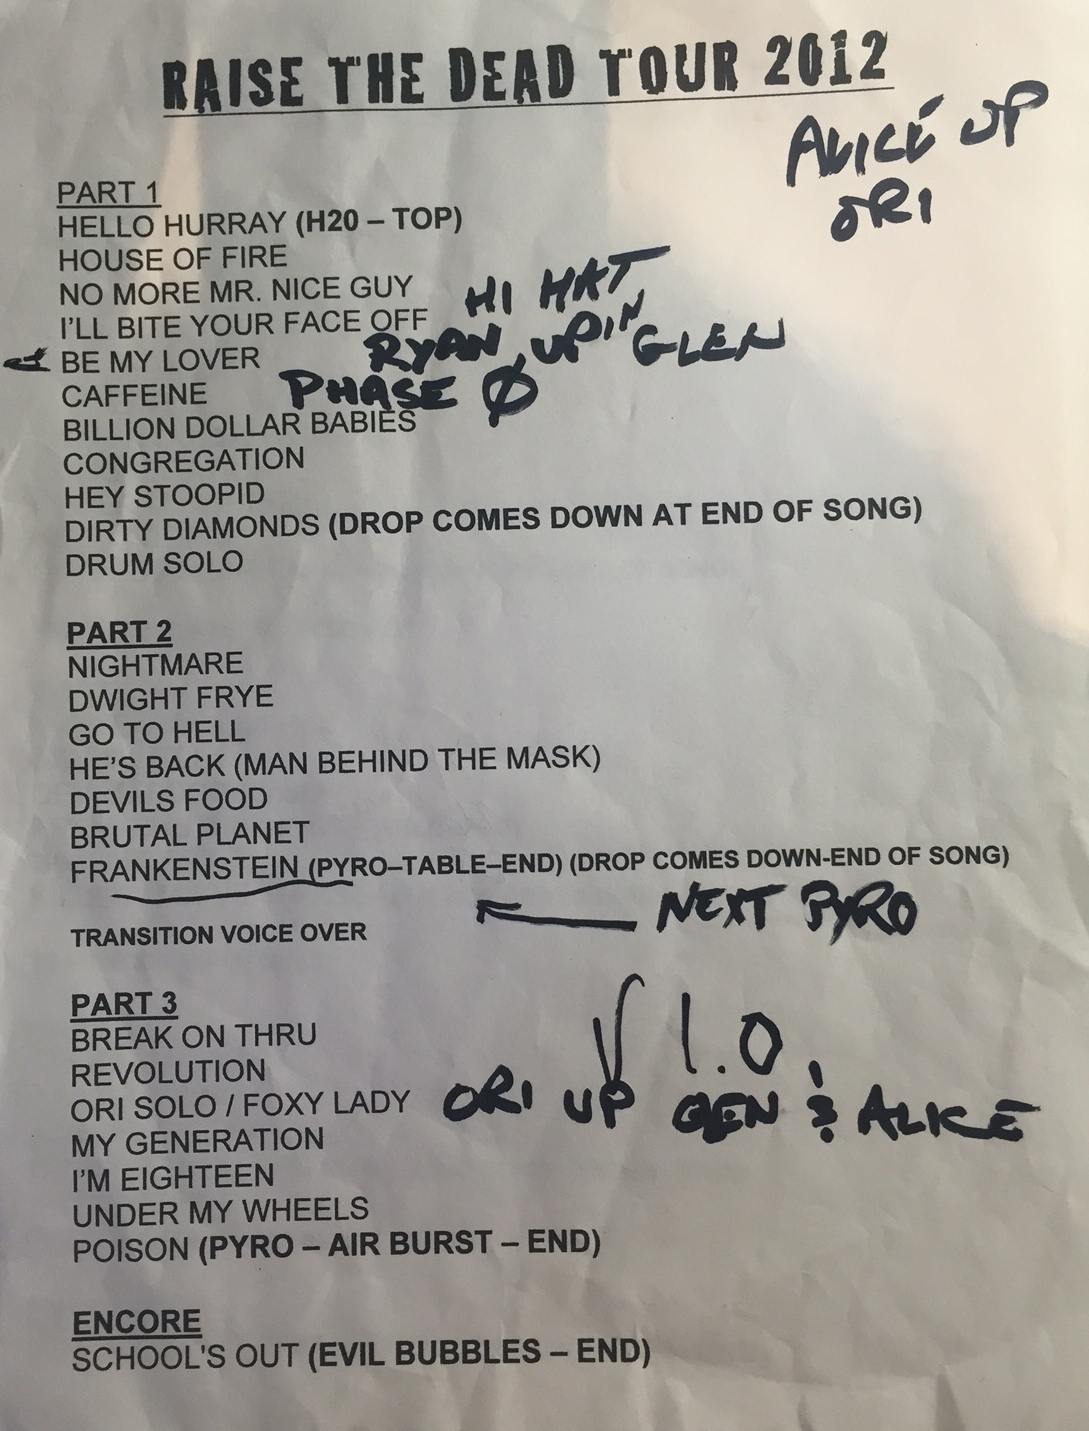 RAISE THE DEAD TOUR 2012
ALICE UP
ORI
PART 1
HELLO HURRAY (H20 – TOP)
HOUSE OF FIRE
NO MORE MR. NICE GUY
HI HAT
I'LL BITE YOUR FACE OFF
BE MY LOVER
RYAN UP IN GLEN
CAFFEINE
PHASE Ø
BILLION DOLLAR BABIES
CONGREGATION
HEY STOOPID
DIRTY DIAMONDS (DROP COMES DOWN AT END OF SONG)
DRUM SOLO
PART 2
NIGHTMARE
DWIGHT FRYE
GO TO HELL
HE'S BACK (MAN BEHIND THE MASK)
DEVILS FOOD
BRUTAL PLANET
FRANKENSTEIN (PYRO–TABLE–END) (DROP COMES DOWN-END OF SONG)
NEXT PYRO
TRANSITION VOICE OVER
PART 3
BREAK ON THRU
REVOLUTION
ORI SOLO / FOXY LADY
ORI UP GEN & ALICE
MY GENERATION
I'M EIGHTEEN
UNDER MY WHEELS
POISON (PYRO – AIR BURST – END)
ENCORE
SCHOOL'S OUT (EVIL BUBBLES – END)